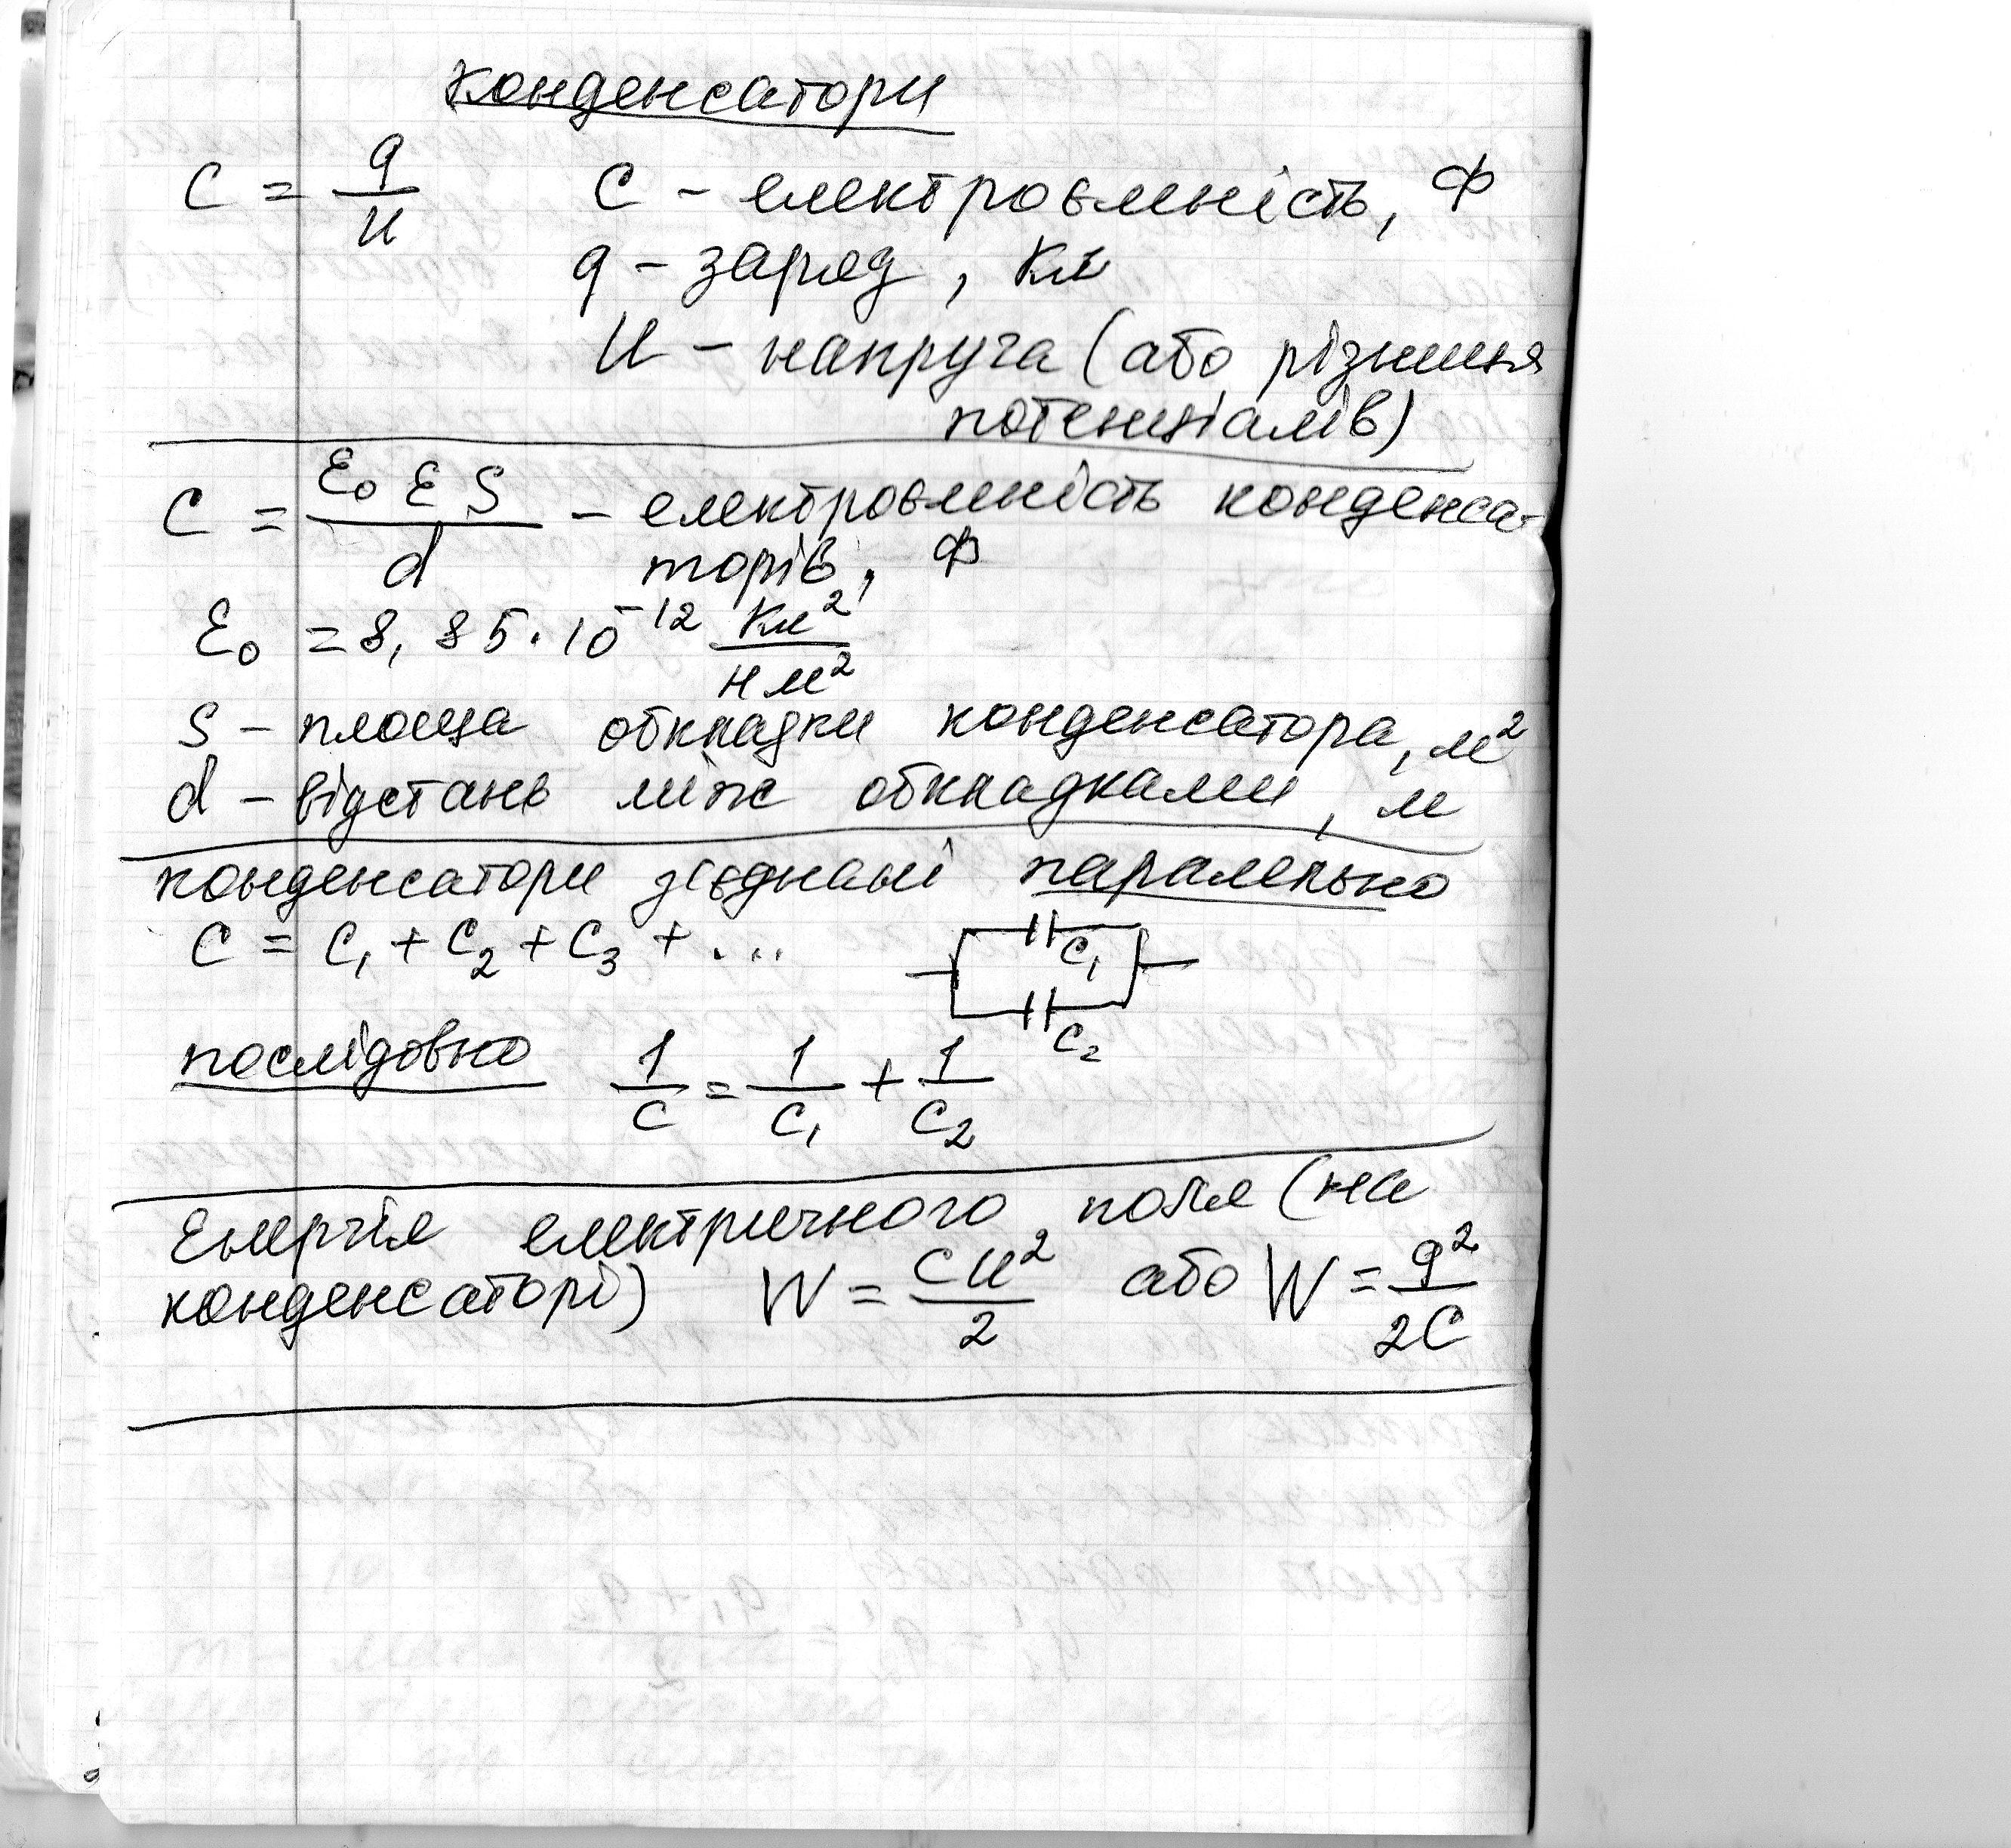 конденсатори
C = q/U   C – електроємність, Ф
q – заряд, Кл
U – напруга (або різниця
потенціалів)
C = ε₀ ε S / d – електроємність конденса-
торів, Ф
ε₀ = 8,85·10⁻¹² Кл²/Н м²
S – площа обкладки конденсатора, м²
d – відстань між обкладками, м
конденсатори з'єднані паралельно
C = C₁ + C₂ + C₃ + ...
C₁
C₂
послідовно 1/C = 1/C₁ + 1/C₂
Енергія електричного поля (на
конденсаторі) W = CU²/2 або W = q²/2C